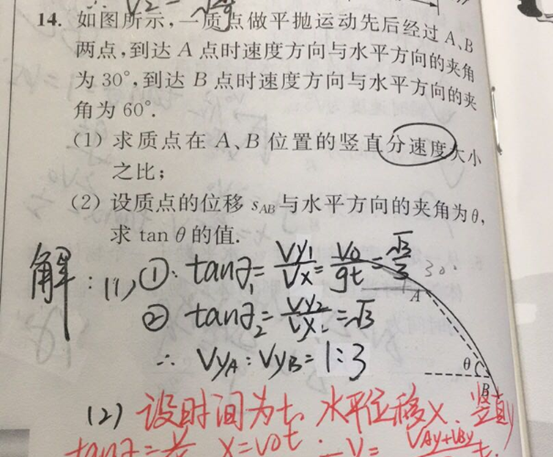 14. 如图所示,一质点做平抛运动先后经过 A、B
两点,到达 A 点时速度方向与水平方向的夹角
为 30°,到达 B 点时速度方向与水平方向的夹
角为 60°.
(1) 求质点在 A、B 位置的竖直分速度大小
之比;
(2) 设质点的位移 sAB 与水平方向的夹角为 θ,
求 tan θ 的值.
解:(1) ①: tanθ1 = Vy1/Vx = V0/gt = √3/3
30°
② tanθ2 = Vy2/Vx = √3
A
∴ VyA : VyB = 1 : 3
θ
B
(2) 设时间为t, 水平位移x, 竖直y
x = v0t